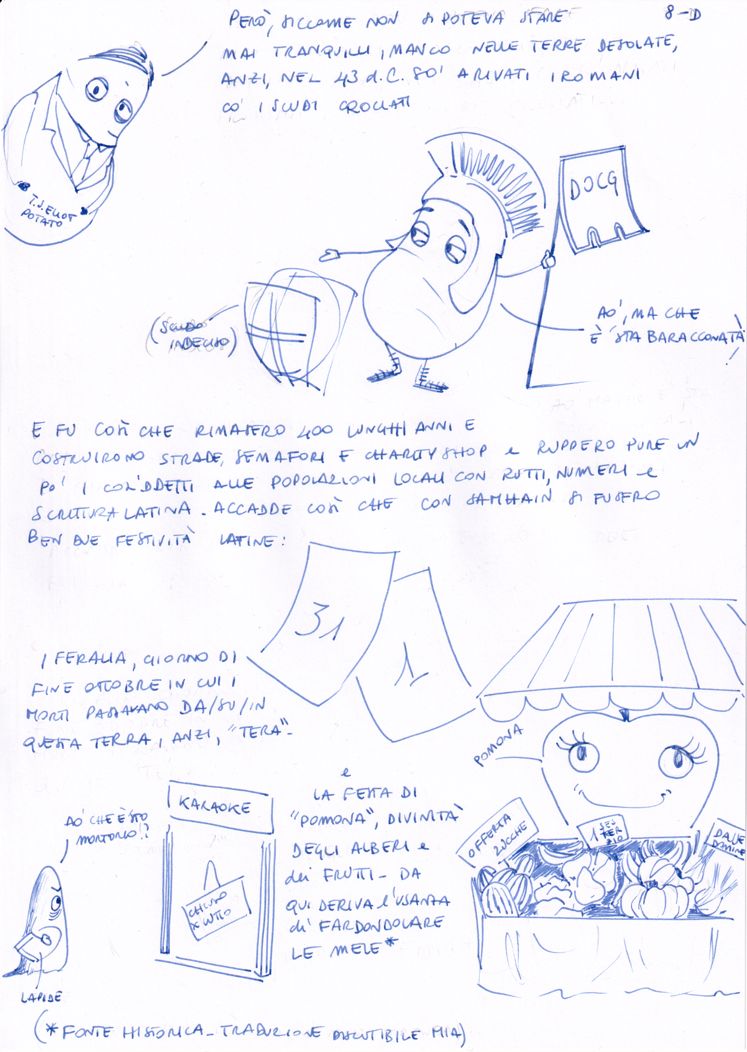 8-D
PERÒ, SICCOME NON SI POTEVA STARE
MAI TRANQUILLI, MANCO NELLE TERRE DESOLATE,
ANZI, NEL 43 d.C. SO' ARIVATI I ROMANI
CO' I SCUDI CROCIATI
T.S. ELIOT
POTATO
DOCG
(SCUDO
INDECISO)
AO', MA CHE
È 'STA BARACCONATA
E FU COSÌ CHE RIMASERO 400 LUNGHI ANNI E
COSTRUIRONO STRADE, SEMAFORI E CHARITY SHOP e RUPPERO PURE UN
PO' I COS'DDETTI ALLE POPOLAZIONI LOCALI CON RUTTI, NUMERI e
SCRITTURA LATINA. ACCADDE COSÌ CHE CON SAMHAIN SI FUSERO
BEN DUE FESTIVITÀ LATINE:
31
1
I FERALIA, GIORNO DI
FINE OTTOBRE IN CUI I
MORTI PASSAVANO DA/SU/IN
QUESTA TERRA, ANZI, "TERA".
POMONA
e
LA FESTA DI
"POMONA", DIVINITÀ
DEGLI ALBERI e
dei FRUTTI - DA
QUI DERIVA l'USANZA
di FARDONDOLARE
LE MELE*
OFFERTA
ZUCCHE
1 SES
TER
ZIO
KARAOKE
CHIUSO
X LUTTO
AO' CHE È STO
MORTORIO!?
LAPIDE
(*FONTE HISTORICA - TRADUZIONE DISCUTIBILE MIA)